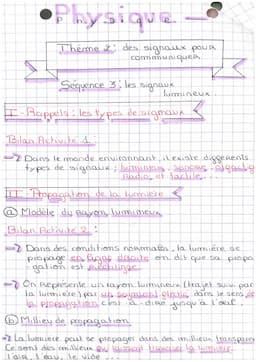 Physique
Thème 2 : des signaux pour
communiquer
Séquence 3 : les signaux
lumineux
I - Rappels : les types de signaux
Bilan Activité 1
→ Dans le monde environnant, il existe différents
types de signaux : lumineux, sonore,
radio, et tactile...
II - Propagation de la lumière
(a) Modèle du rayon lumineux
Bilan Activité 2 :
→ Dans des conditions normales, la lumière se
propage en ligne droite on dit que sa propa
- gation est rectiligne.
→ On représente un rayon lumineux (trajet suivi par
la lumière) par un segment fléché dans le sens de
la propagation c'est-à-dire jusqu'à l'œil.
(b) Milieu de propagation
→ La lumière peut se propager dans des milieux transparents
Ce sont des milieux qui laissent passer la lumière
l'air, l'eau, le vide ...